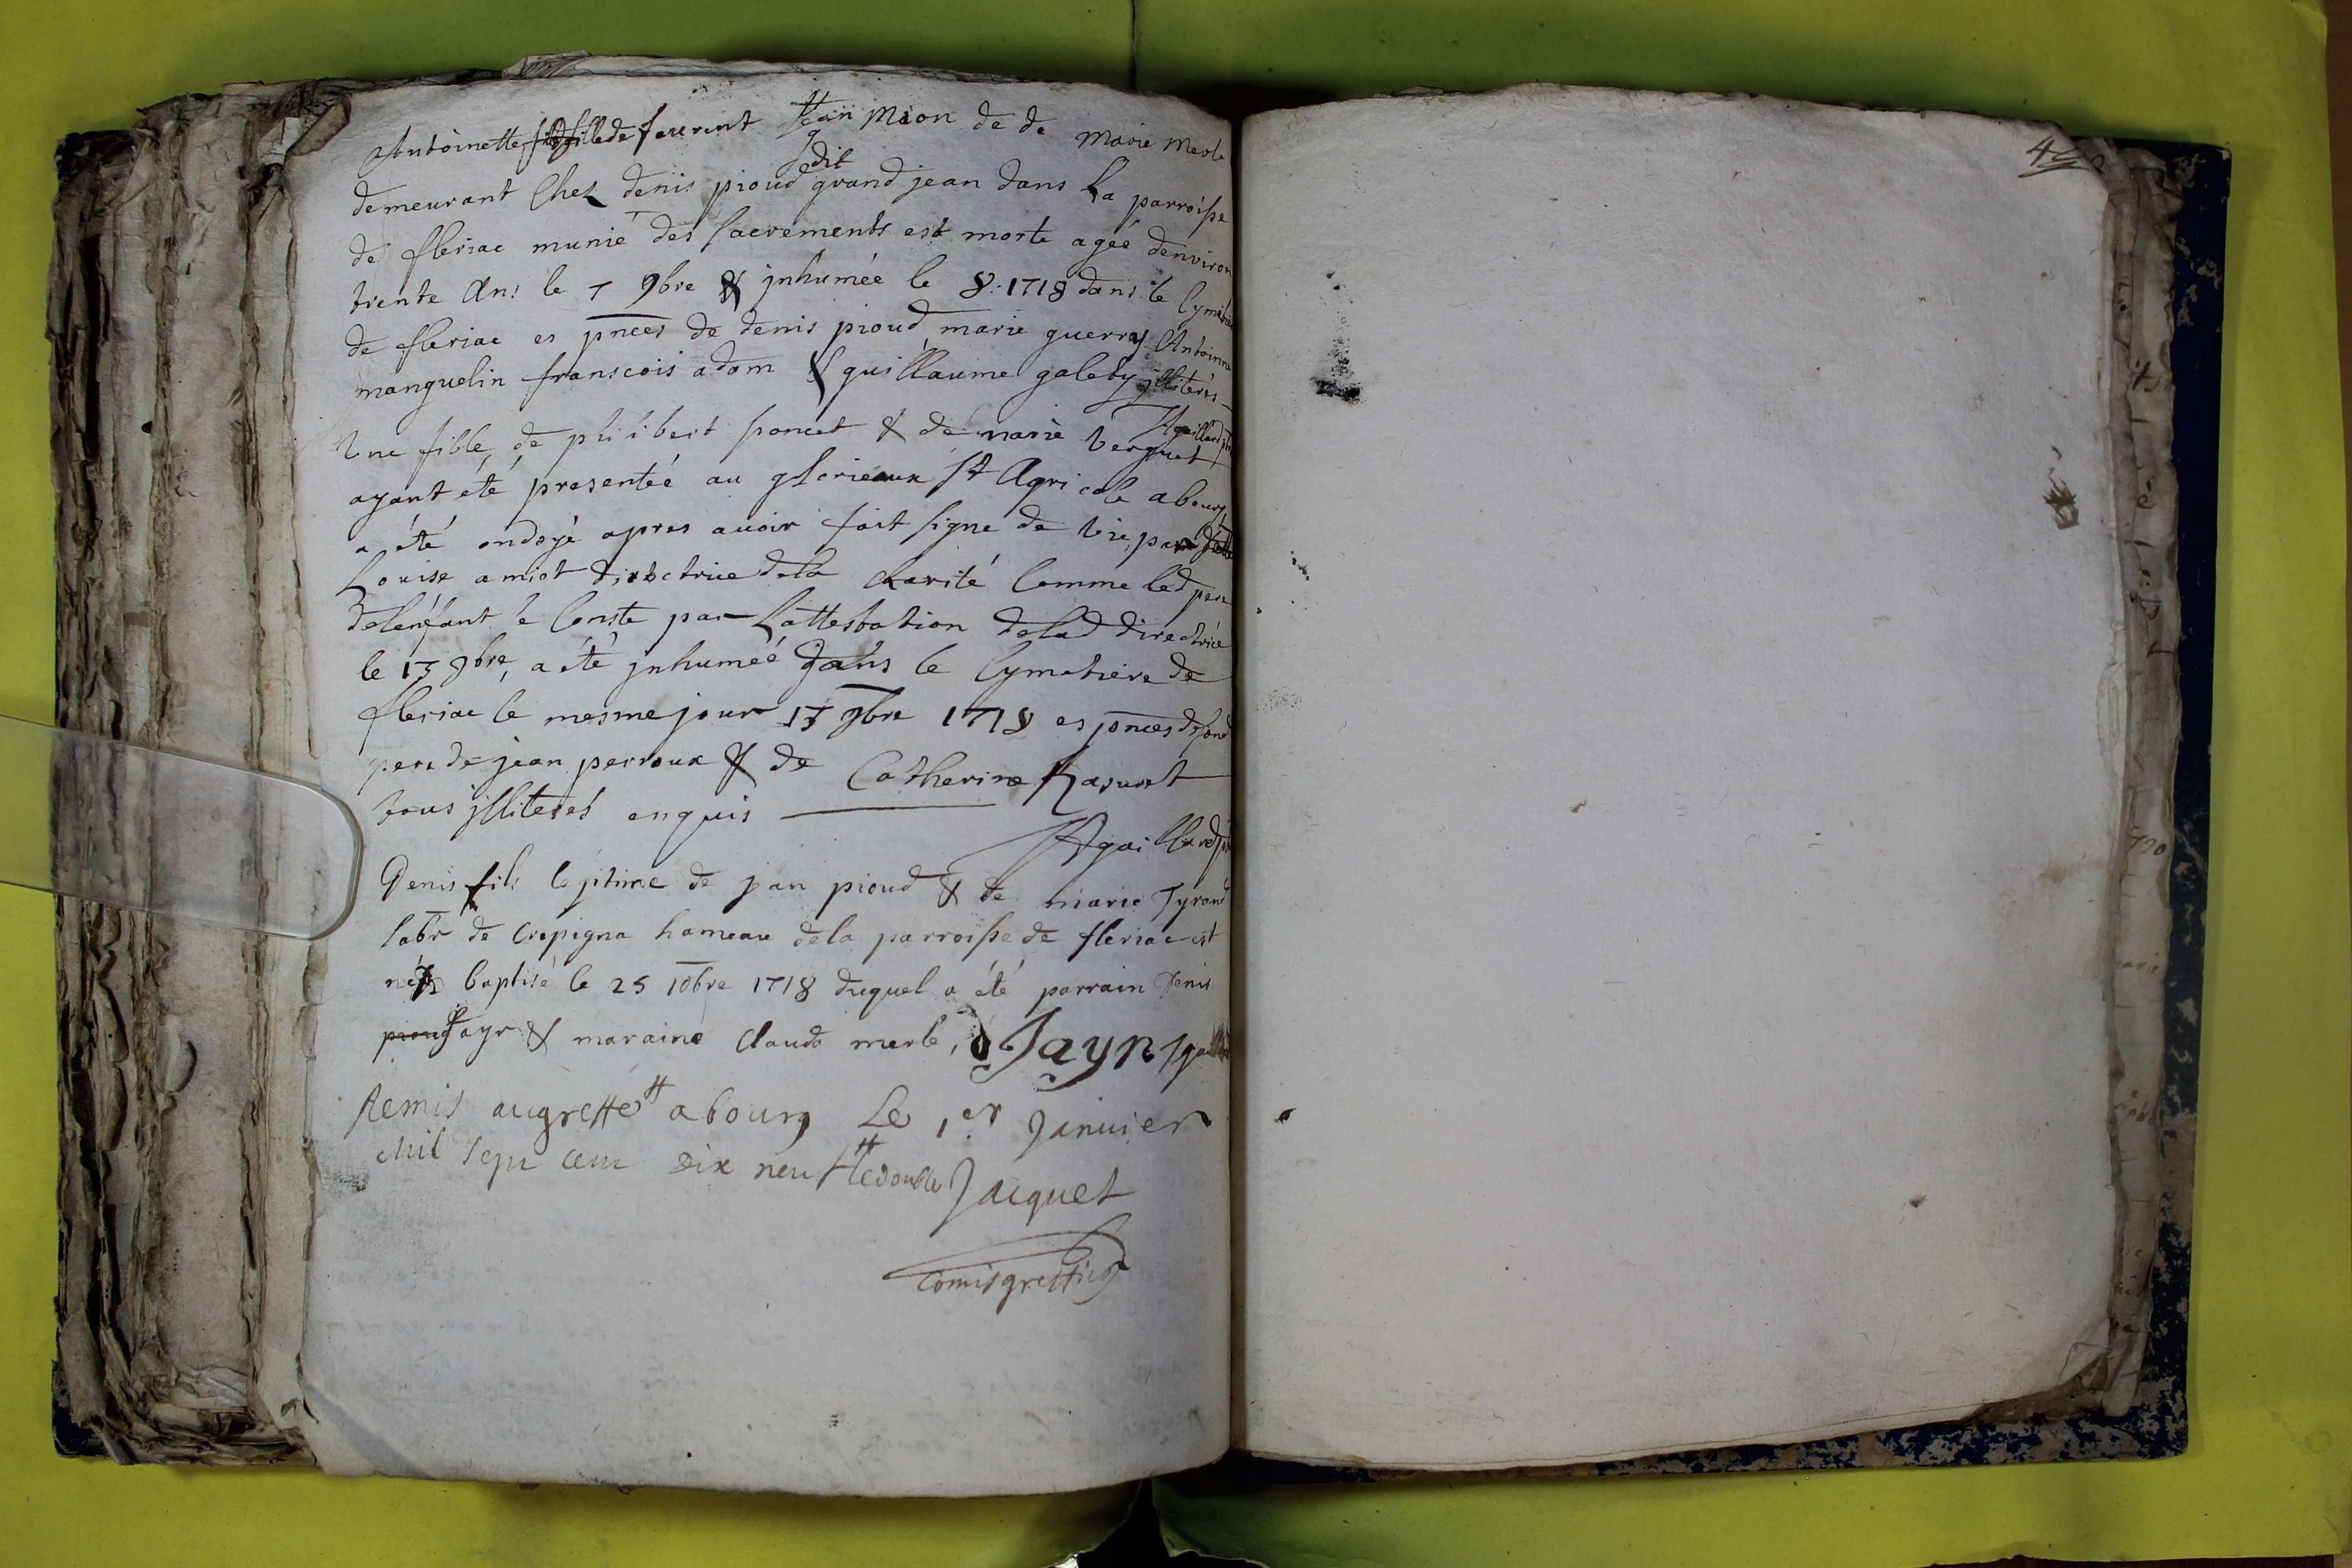 Antoinette fille de feu Jean Mion de de marie merle
demeurant Chez denis pioud dit grand jean dans La parroisse
de fleriac munié des sacrements est morte ageé denviron
trente Ans le 7 9bre & jnhumée le 8: 1718 dans le Cymetiere
de fleriac es pnces de denis pioud marie guerry Antoinne
manguelin franscois adom & guillaume galety jlliterés
JAgaillard
Une fille de philibert poncet & de marie verguet
ayant été presenteé au glorieaux st Agricole a bourg
a été ondoyé apres auoir fait signe de vie par
Louise amiot directrice dela charité Comme led pere
delenfant le Conste par Lattestation delad directrice
le 13 9bre, a été jnhumeé dans le Cymetiere de
fleriac le mesme jour 13 9bre 1718 es pnces dud
pere de jean perroux & de Catherine Rasuret
tous jlliterés enquis
JAgaillard
Denis fils legitime de jean pioud & de marie Tyrand
labr de Crepigna hameau dela parroisse de fleriac est
né & baptisé le 25 10bre 1718 duquel a été parrain denis
pioud Jayr & maraine Claude merle, d Jayr
Remis au greffe a bourg Le 1er Januier
Mil sept cent Dix neuf le double Jacquet
Comis greffier
4
720